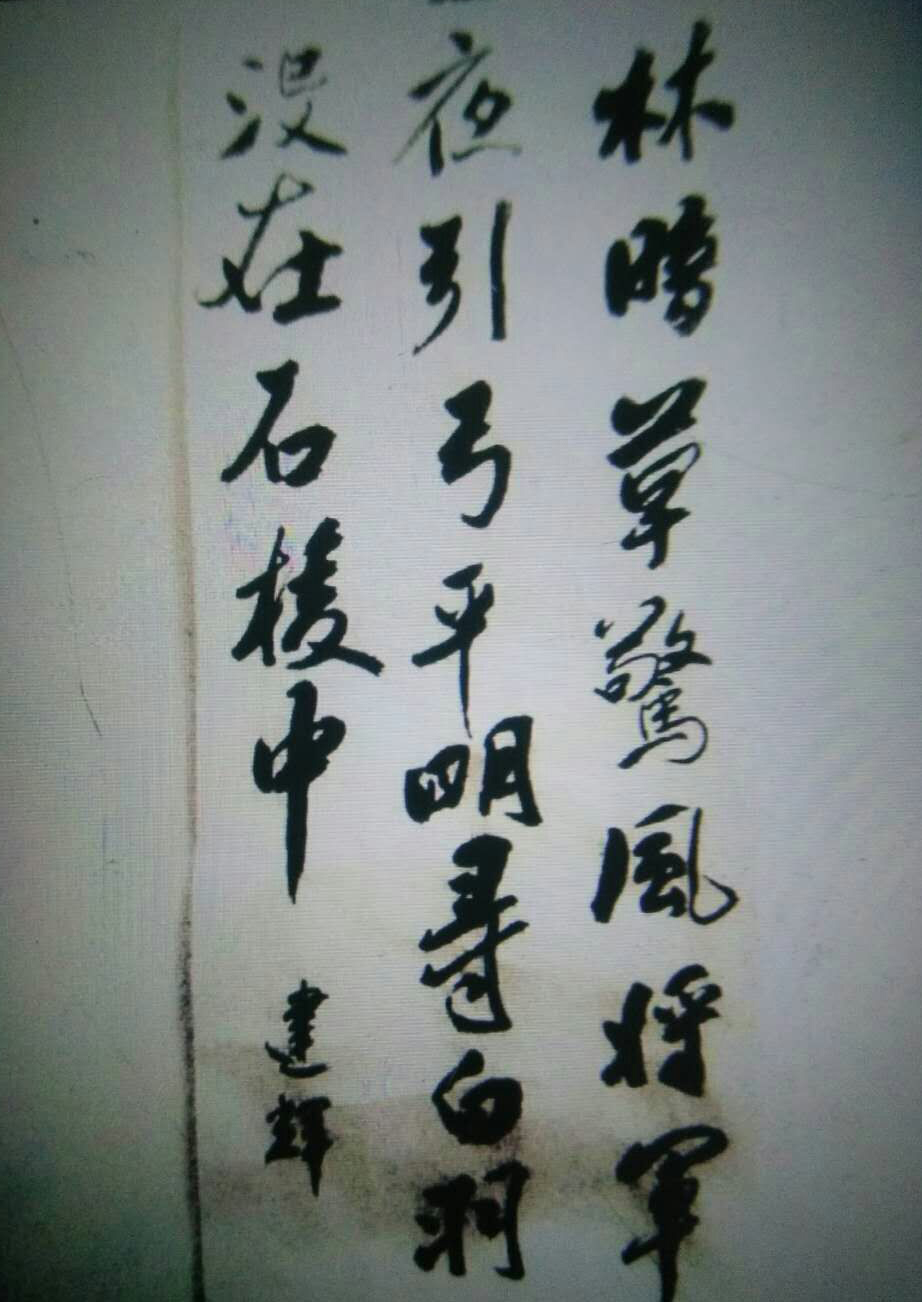 林暗草驚風将軍
夜引弓平明尋白羽
没在石稜中
建輝